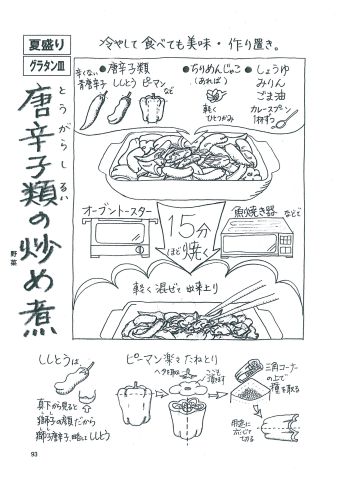 夏盛り
グラタン皿
冷やして食べても美味・作り置き。
唐辛子類の炒め煮
とうがらしるい
野菜
●唐辛子類
辛くない
青唐辛子 ししとう ピーマン
など
●ちりめんじゃこ
(あれば)
軽く
ひとつかみ
●しょうゆ
みりん
ごま油
カレースプーン
1杯ずつ
オーブントースター
15分
ほど焼く
魚焼き器 などで
軽く混ぜて出来上り
ししとうは、
真下から見ると
獅子の顔だから
獅子唐辛子、略してししとう
ピーマン楽々たねとり
ヘタを取る
ここを
三角コーナー
の上で
種を取る
用途に
応じて
切る
93